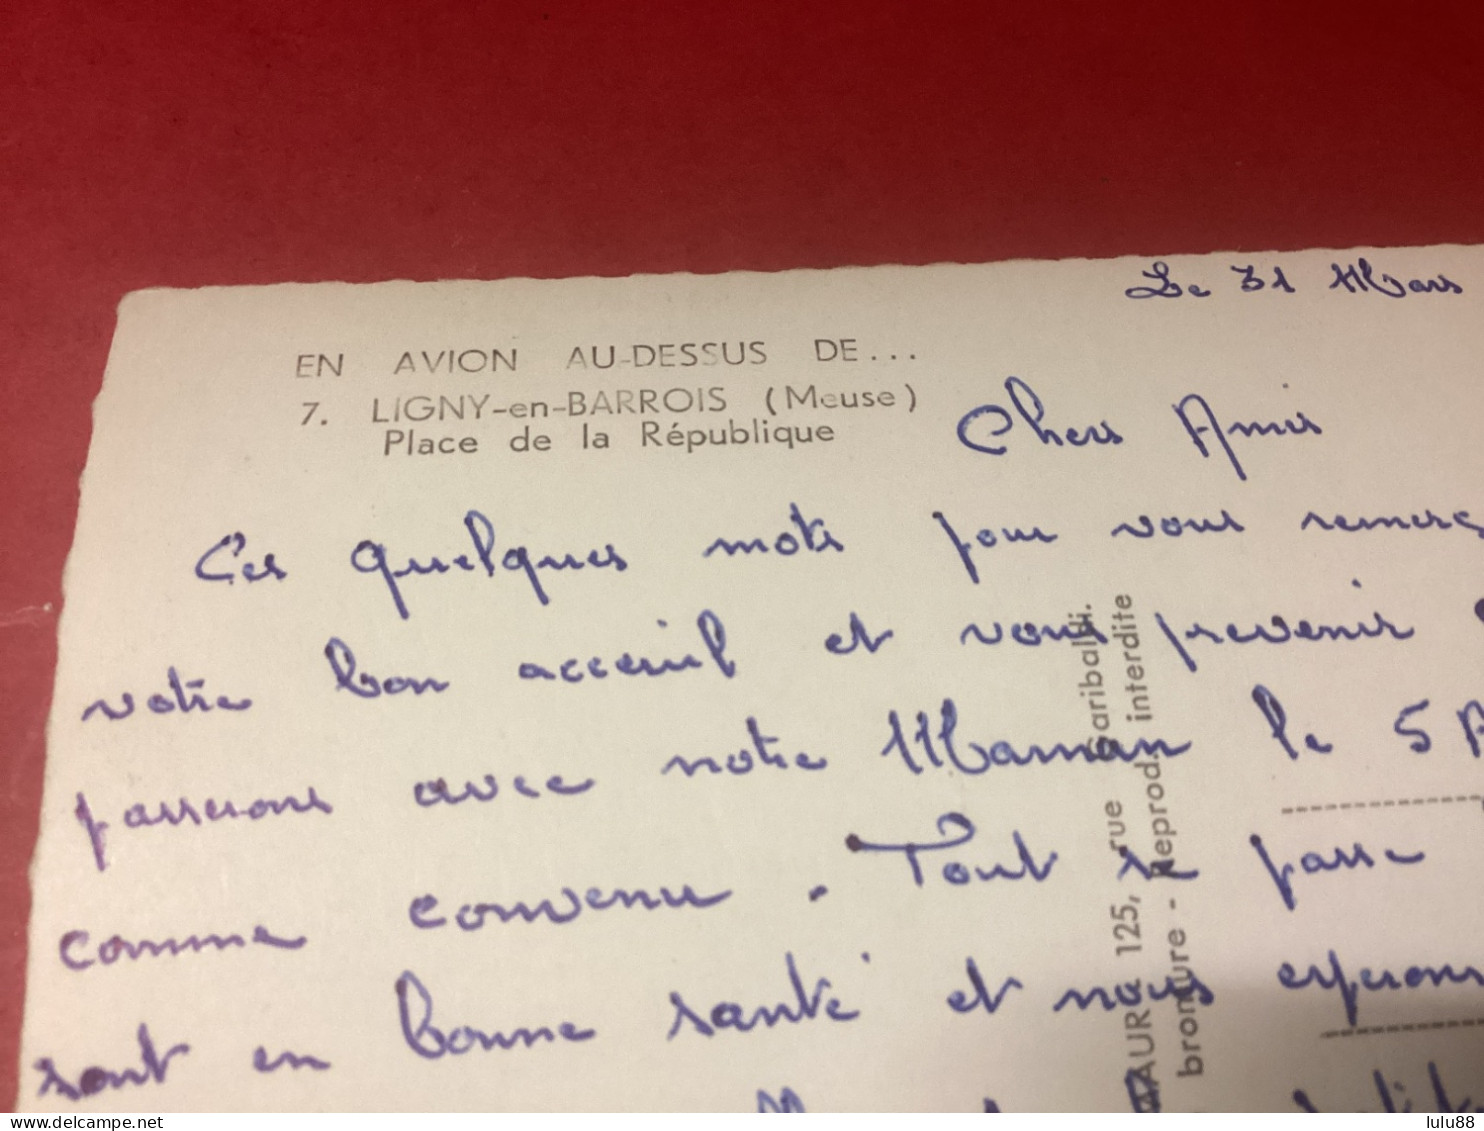 Le 31 Mars
EN AVION AU-DESSUS DE...
7. LIGNY-en-BARROIS (Meuse)
Place de la République
Chers Amis
Ces quelques mots pour vous remerc
votre bon acceuil et vous prevenir
passerons avec notre Maman le 5 A
comme convenu. Tout se passe
sont en bonne santé et nous esperons
125, rue Garibaldi.
bromure - Reprod. interdite
delcampe.net
lulu88